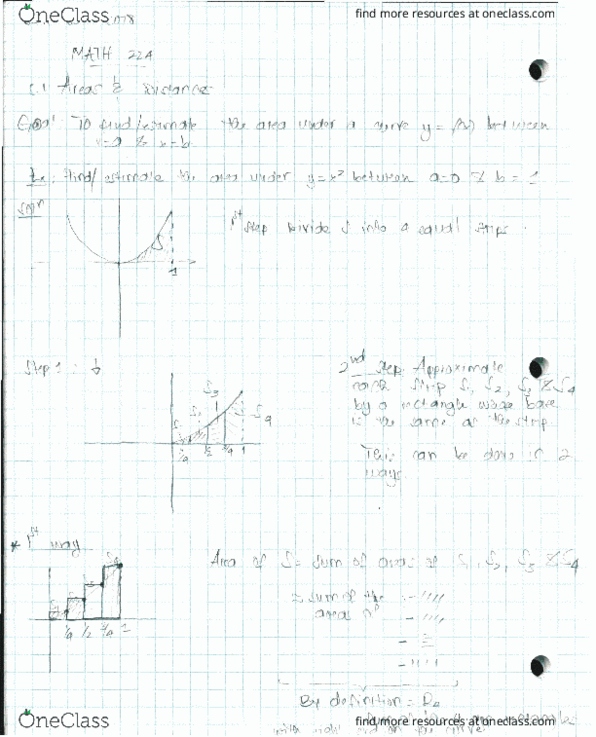 OneClass
find more resources at oneclass.com
MATH 224
Areas & Distances
Goal: To find/estimate the area under a curve y=f(x) between
x=a & x=b
Ex: find/estimate the area under y=x² between a=0 & b=1
Sol'n
1st step divide S into 4 equal strips
S
1
Step 1:
2nd step Approximate
each strip S1, S2, S3 & S4
by a rectangle whose base
is the same as the strip
This can be done in 2
ways
S3
S4
1/4 1/2 3/4 1
* 1st way
Area of S = sum of areas of S1, S2, S3 & S4
= sum of the
area of
1/4 1/2 3/4 1
By definition = R4
OneClass
find more resources at oneclass.com